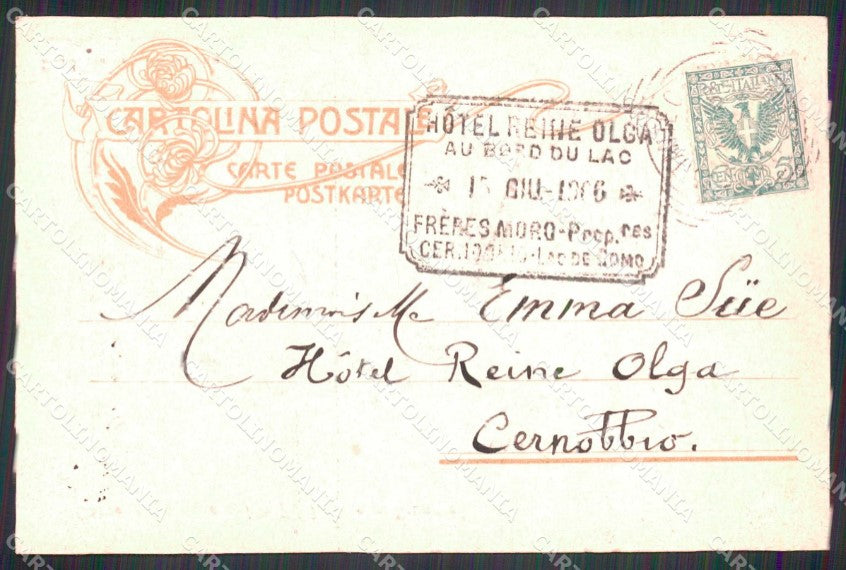 CARTOLINA POSTALE
CARTE POSTALE
POSTKARTE
HÔTEL REINE OLGA
AU BORD DU LAC
GIU-1906
FRÈRES MORO-Propres
CERNOBBIO-LAC DE COMO
POSTE ITALIANE
CENTESIMI 5
Mademoiselle Emma Süe
Hôtel Reine Olga
Cernobbio.
CARTOLINOMANIA